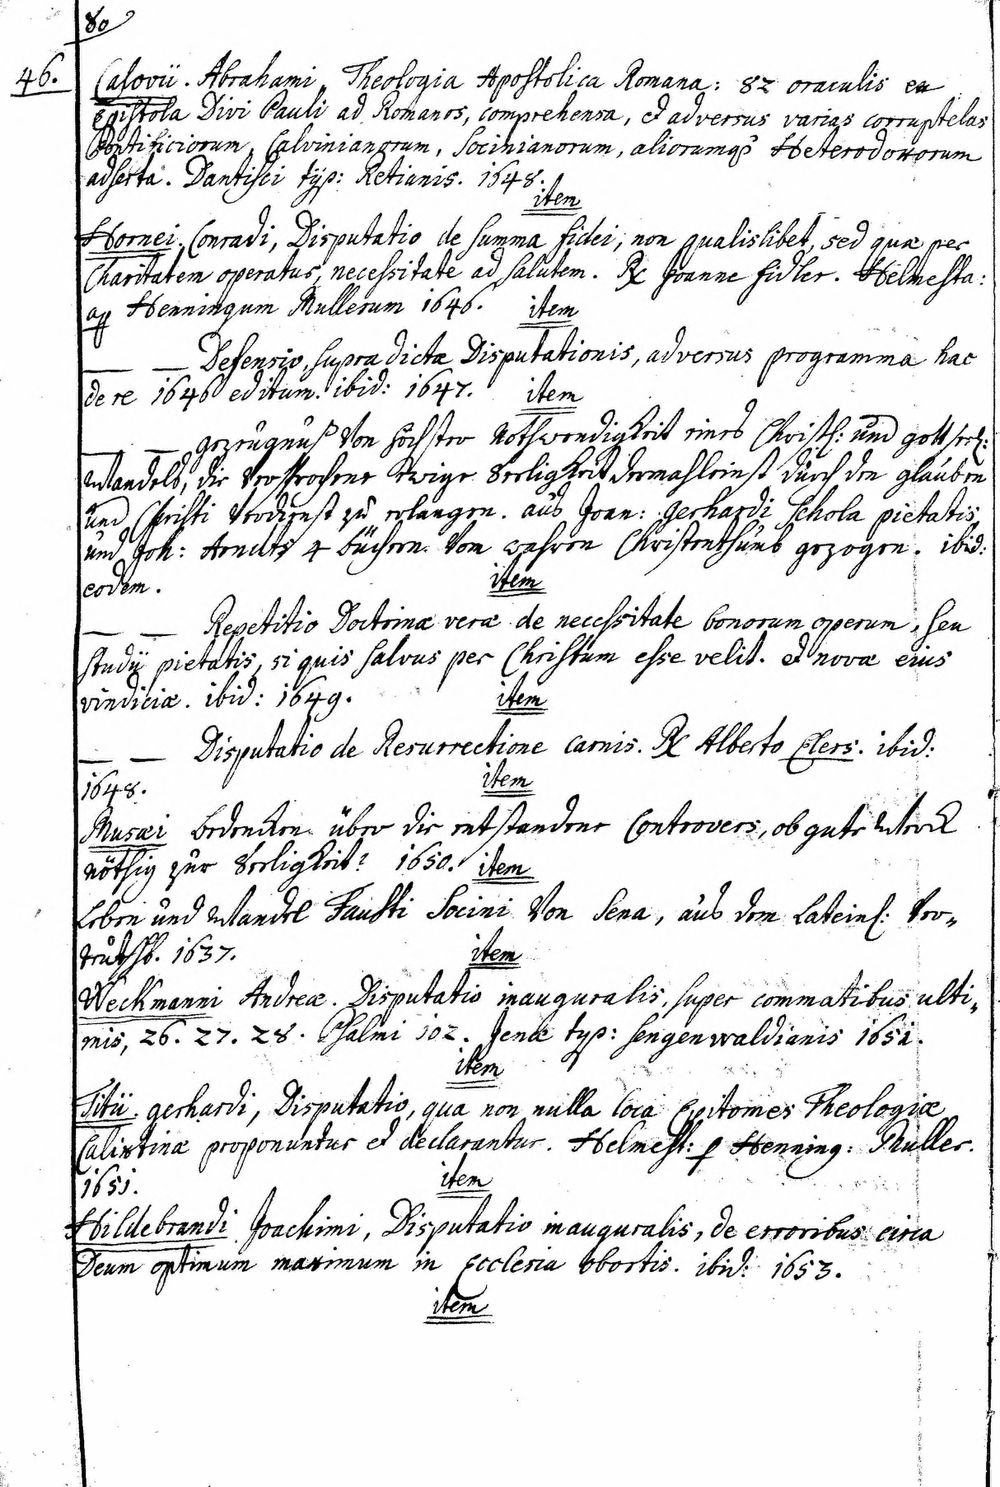 80
46. Calovii. Abrahami, Theologia Apostolica Romana: 82 oraculis ex
Epistola Divi Pauli ad Romanos, comprehensa, et adversus varias corruptelas
Pontificiorum, Calvinianorum, Socinianorum, aliorumq3 Heterodoxorum
adserta. Dantisci typ: Retianis. 1648.
item
Hornei. Conradi, Disputatio de summa fidei, non qualislibet, sed quæ per
Charitatem operatur, necessitate ad salutem. Rx Joanne Fidler. Helmesta:
ap Henningum Mullerum 1646.
item
— — Defensio, supra dictæ Disputationis, adversus programma hac
de re 1646 editum. ibid: 1647.
item
— — gezeugnuß Von höchster Nothwendigkeit eines Christl: und gottseel:
Wandels, die Versprochene Ewige Seeligkeit dermahleinst durch den glauben
und Christi Verdienst zu erlangen. aus Joan: Gerhardi Schola pietatis
und Joh: Arndts 4 büchern Vom wahren Christenthumb gezogen. ibid:
eodem.
item
— — Repetitio Doctrinæ veræ de necessitate bonorum operum, seu
studii pietatis, si quis salvus per Christum esse velit. et novæ eius
vindiciæ. ibid: 1649.
item
— — Disputatio de Resurrectione carnis. Rx Alberto Elers. ibid:
1648.
item
Musæi bedencken über die entstandene Controvers, ob gute Werck
nöthig zur Seeligkeit? 1650.
item
Leben und Wandel Fausti Socini Von Sena, aus dem Lateinl: Ver-
teutsch. 1637.
item
Weckmanni Andreæ. Disputatio inauguralis, super commatibus ulti-
mis, 26. 27. 28. Psalmi 102. Jenæ typ: Sengenwaldianis 1651.
item
Titii. gerhardi, Disputatio, qua non nulla loca Epitomes Theologiæ
Calixtinæ proponuntur et declarantur. Helmest: p Henning: Muller.
1651.
item
Hildebrandi Joachimi, Disputatio inauguralis, de erroribus circa
Deum optimum maximum in Ecclesia obortis. ibid: 1653.
item